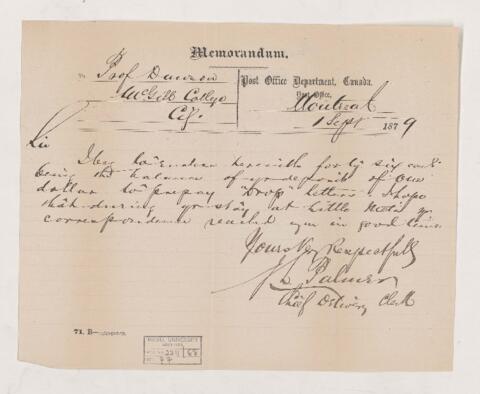 Memorandum.
To Prof Dawson
McGill College
City
Post Office Department, Canada.
Post Office,
Montreal
1 Sept 1879
Sir
I beg to enclose herewith forty six cents
being the balance of yr deposit of one
dollar to prepay "drop" letters I hope
that during yr stay at Little Metis yr
correspondence reached you in good time.
Yours Very Respectfully
Palmer
Chief Delivery Clerk
71. B—
McGILL UNIVERSITY
ARCHIVES